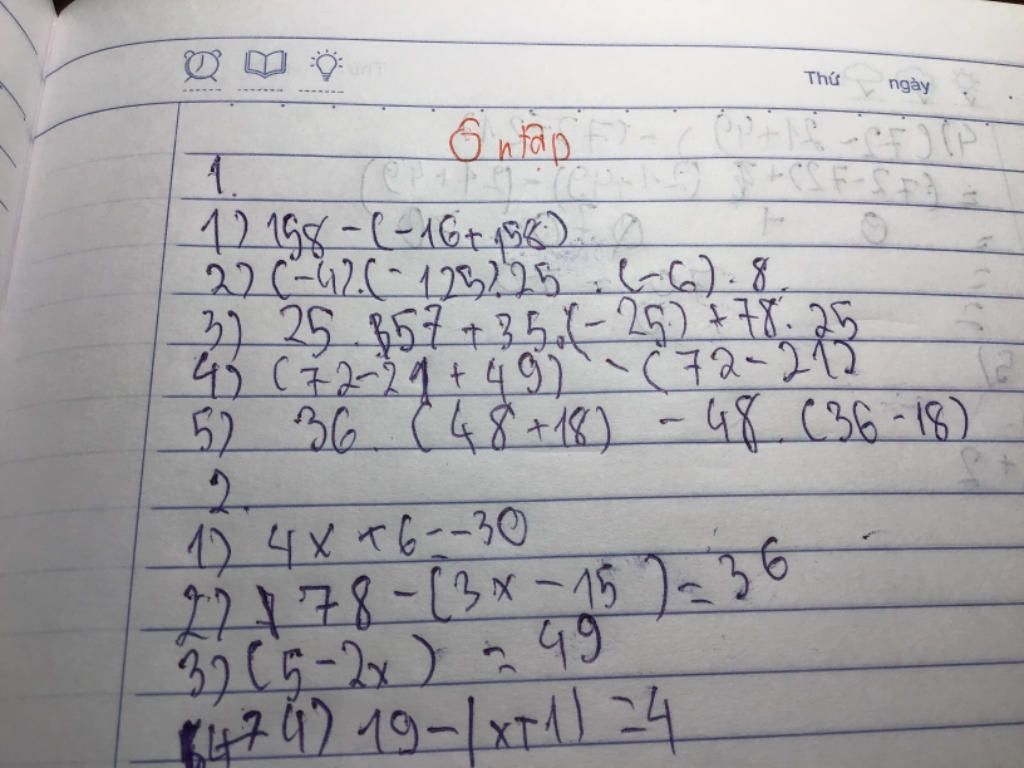 Thứ ngày
Ôn tập
1.
1) 158 - (-16 + 158)
2) (-4).(-125).25 . (-6) . 8.
3) 25 . 357 + 35.(-25) + 78. 25
4) (72-21 + 49) - (72-21)
5) 36 . (48+18) - 48 . (36-18)
2.
1) 4x + 6=-30
2) 78 - (3x - 15) = 36
3) (5-2x) = 49
4) 19 - |x+1| = 4